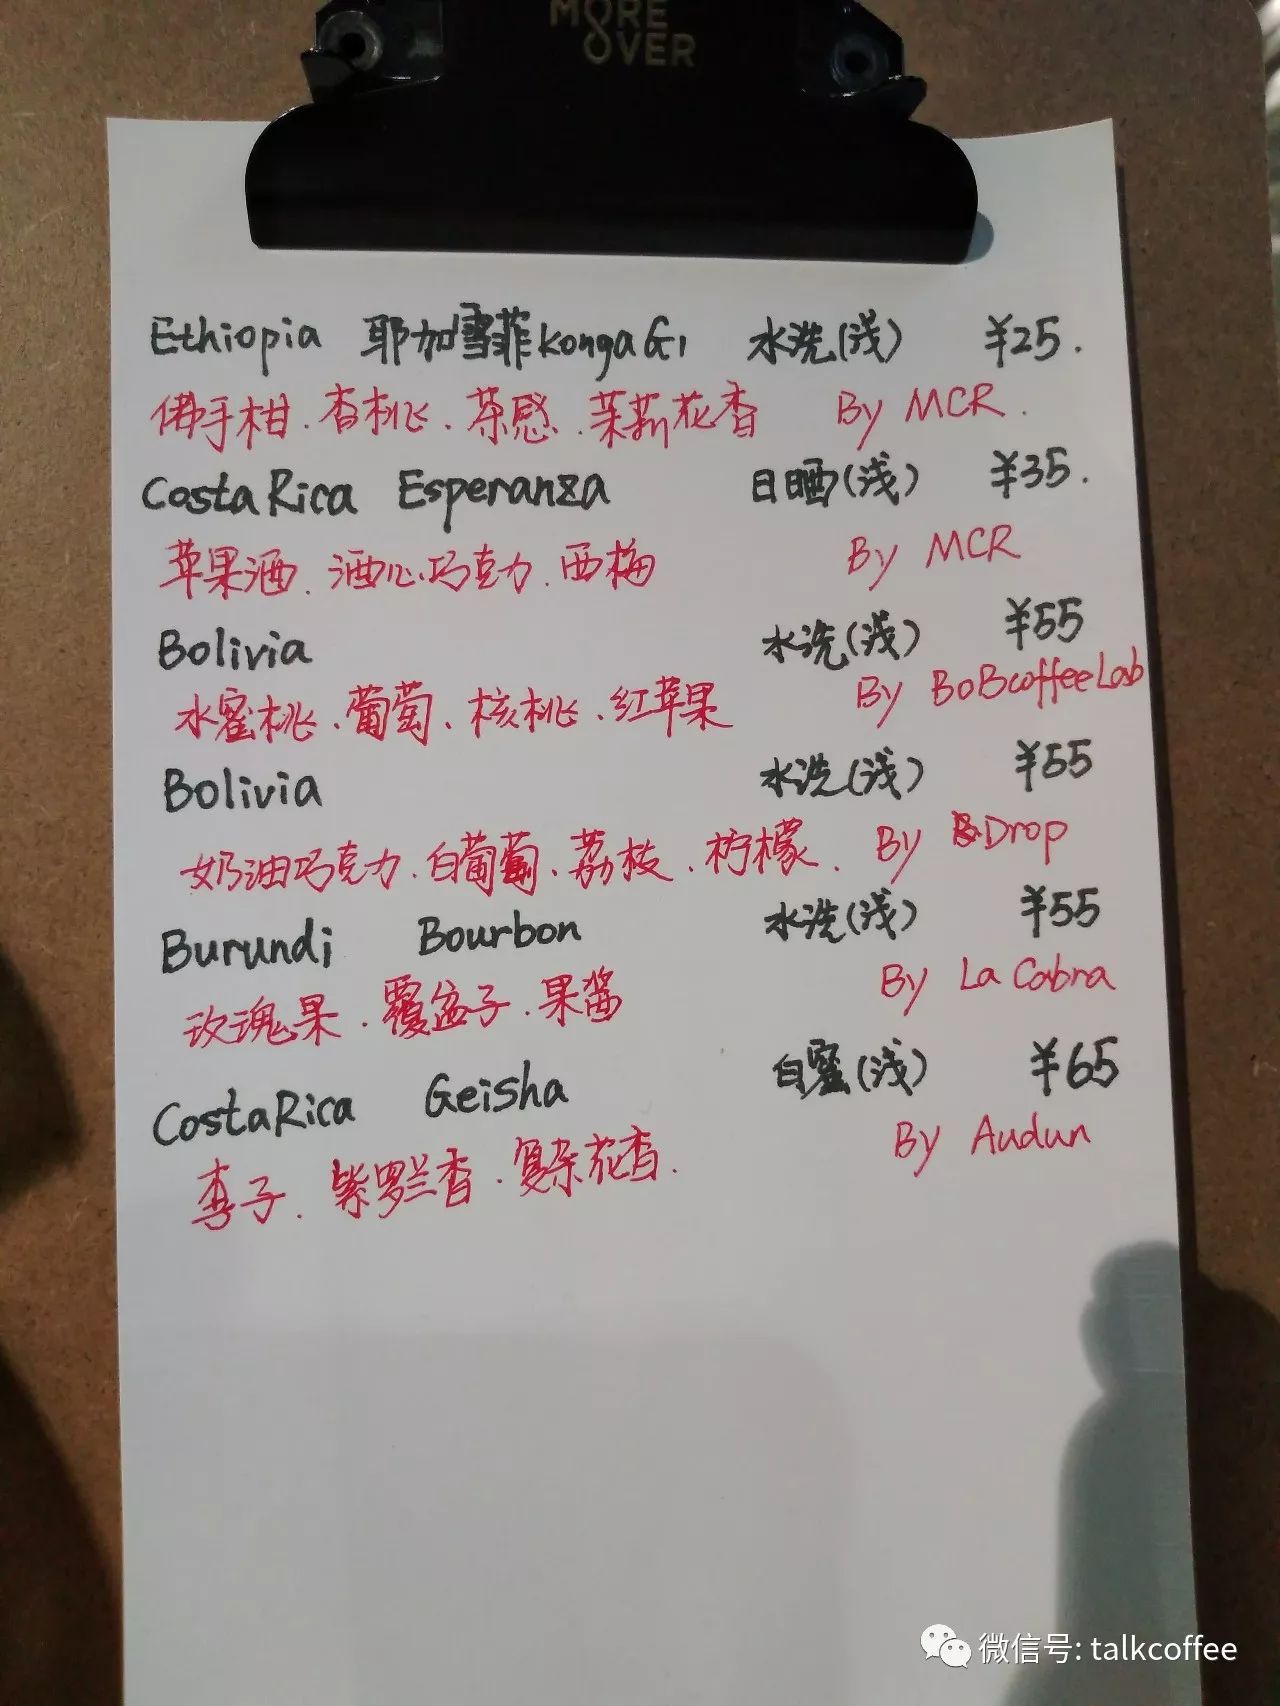 MORE
OVER
Ethiopia 耶加雪菲 Konga G1 水洗(浅) ¥25.
佛手柑.香桃.茶感.茉莉花香 By MCR.
Costa Rica Esperanza 日晒(浅) ¥35.
苹果酒.酒心巧克力.西梅 By MCR
Bolivia 水洗(浅) ¥55
水蜜桃.葡萄.核桃.红苹果 By BoBcoffeeLab
Bolivia 水洗(浅) ¥55
奶油巧克力.白葡萄.荔枝.柠檬. By Drop
Burundi Bourbon 水洗(浅) ¥55
玫瑰果.覆盆子.果酱 By La Cabra
CostaRica Geisha 白蜜(浅) ¥65
李子.紫罗兰香.复杂花香. By Audun
微信号: talkcoffee